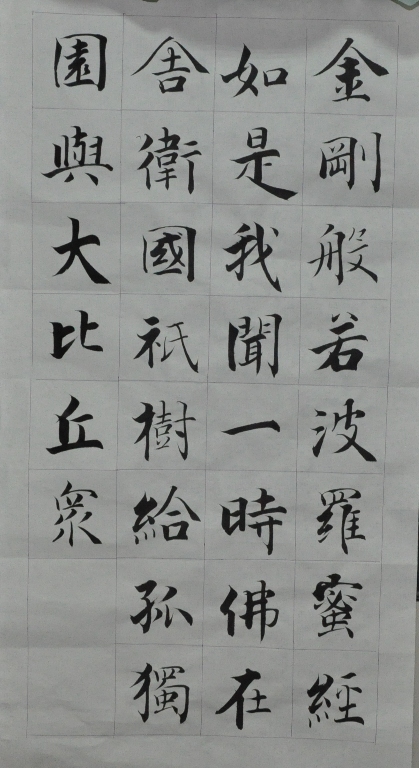 金剛般若波羅蜜經
如是我聞一時佛在
舍衛國祇樹給孤獨
園與大比丘眾